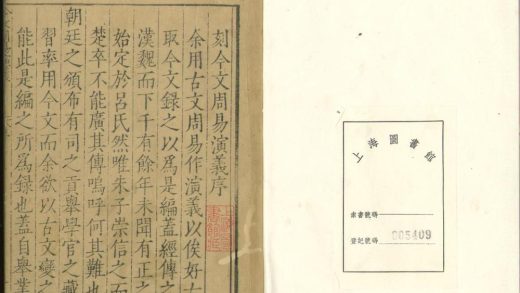 刻今文周易演義序
余用古文周易作演義以俟好古
取今文錄之以為是編蓋經傳之
漢魏而下千有餘年未聞有正之
始定於呂氏然唯朱子崇信之而
楚卒不能廣其傳嗚呼何其難也
朝廷之頒布有司之貢舉學官之藏
習率用今文而余欲以古文變之
能此是編之所為錄也蓋自舉業
上海圖書館
索書號碼
登記號碼 005409